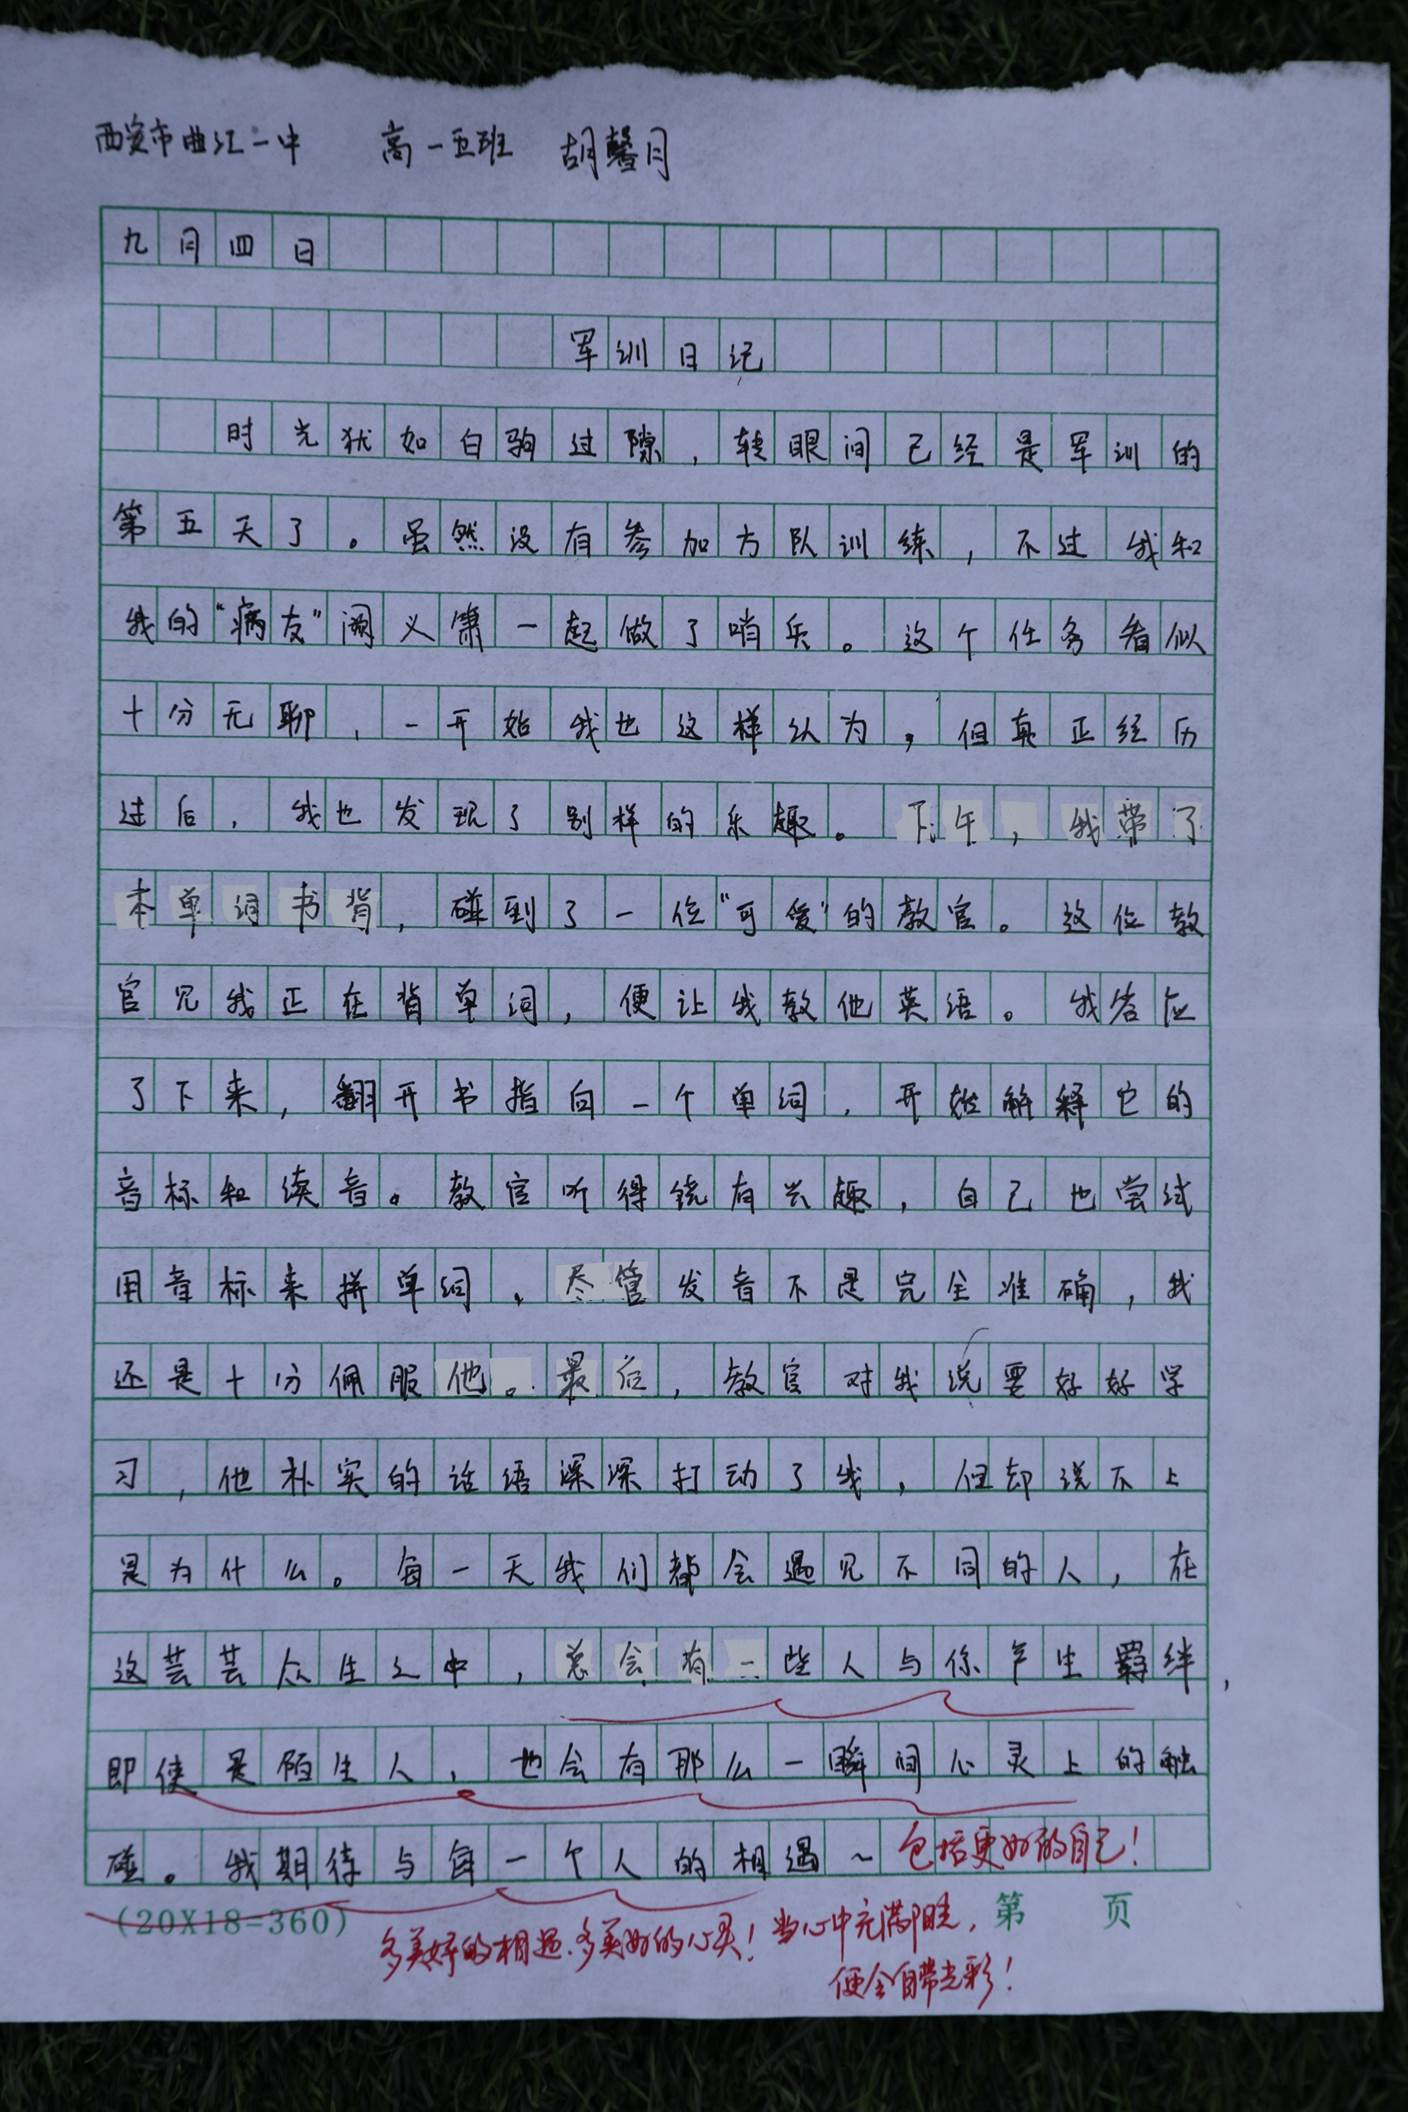 西安市曲江一中 高一五班 胡馨月
九月四日
军训日记
时光犹如白驹过隙，转眼间已经是军训的
第五天了。虽然没有参加方队训练，不过我和
我的“病友”阎义箫一起做了哨兵。这个任务看似
十分无聊，一开始我也这样认为，但真正经历
过后，我也发现了别样的乐趣。下午，我带了
本单词书背，碰到了一位“可爱”的教官。这位教
官见我正在背单词，便让我教他英语。我答应
了下来，翻开书指向一个单词，开始解释它的
音标和读音。教官听得饶有兴趣，自己也尝试
用音标来拼单词，尽管发音不是完全准确，我
还是十分佩服他。最后，教官对我说要好好学
习，他朴实的话语深深打动了我，但却说不上
是为什么。每一天我们都会遇见不同的人，在
这芸芸众生之中，总会有一些人与你产生羁绊，
即使是陌生人，也会有那么一瞬间心灵上的触
碰。我期待与每一个人的相遇～ 包括更好的自己！
(20X18=360) 第 页
多美好的相遇、多美好的心灵！当心中充满阳光，
便会自带光彩！